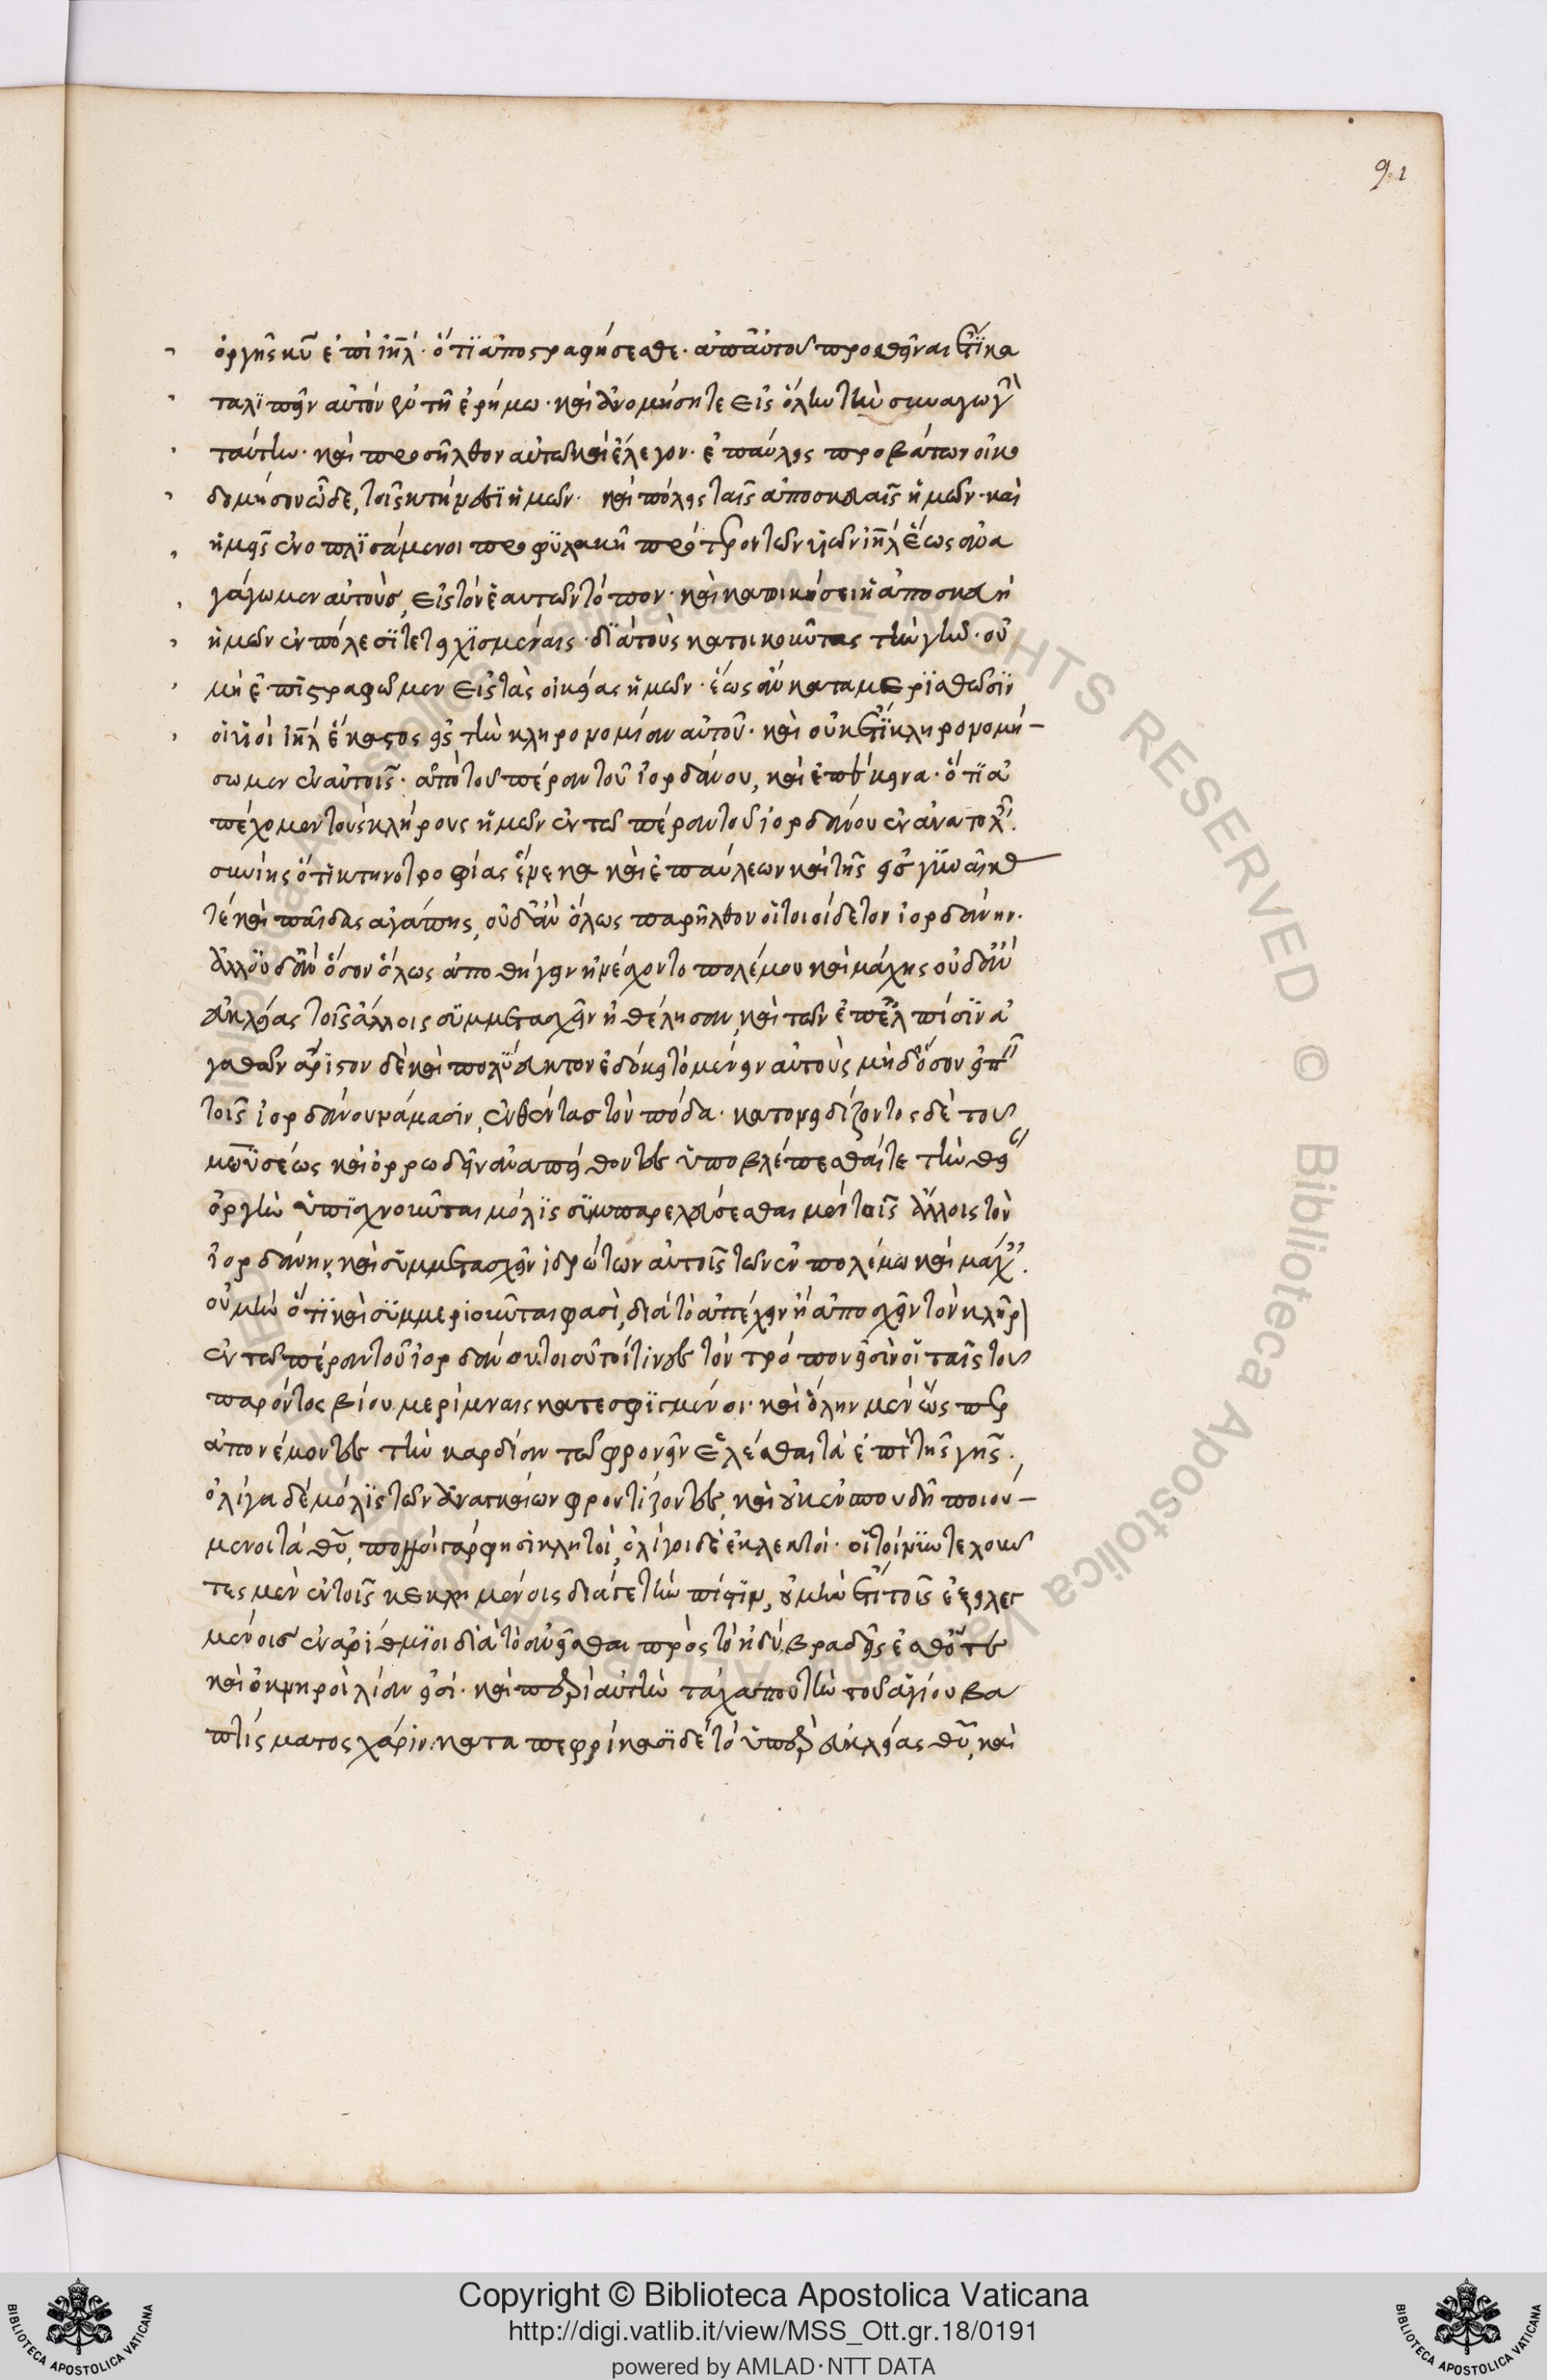 91
ὀργῆς κυ̅ ἐπὶ ιη̅λ· ὅτι ἀποστραφήσεσθε· ἀπ' αὐτοῦ προσθεῖναι ἔτι κα
ταλιπεῖν αὐτὸν ἐν τῇ ἐρήμω· καὶ ἀνομήσητε εἰς ὅλην τὴν συναγωγὴν
ταύτην· καὶ προσῆλθον αὐτῶ καὶ ἔλεγον· ἐπαύλεις προβάτων οἰκο
δομήσομεν ὧδε, τοῖς κτήνεσιν ἡμῶν· καὶ πόλεις ταῖς ἀποσκευαῖς ἡμῶν· καὶ
ἡμεῖς ἐνοπλισάμενοι προφυλακὴ πρότεροι τῶν υἱῶν ιη̅λ ἕως ἂν ἀ
γάγωμεν αὐτοὺς, εἰς τὸν ἑαυτῶν τόπον· καὶ κατοικήσει ἡ ἀποσκευὴ
ἡμῶν ἐν πόλεσι τετειχισμέναις· διὰ τοὺς κατοικοῦντας τὴν γῆν· οὐ
μὴ ἐπιστραφῶμεν εἰς τὰς οἰκίας ἡμῶν· ἕως ἂν καταμερισθῶσιν
οἱ υἱοὶ ιη̅λ ἕκαστος εἰς τὴν κληρονομίαν αὐτοῦ· καὶ οὐκ ἔτι κληρονομή-
σωμεν ἐν αὐτοῖς· ἀπὸ τοῦ πέραν τοῦ ἰορδάνου, καὶ ἐπέκεινα· ὅτι ἀ
πέχομεν τοὺς κλήρους ἡμῶν ἐν τῶ πέραν τοῦ ἰορδάνου ἐν ἀνατολαῖς.
συνίης ὅτι κτηνοτροφίας ἕνεκα καὶ ἐπαύλεων καὶ τῆς εἰς γύναικά
τε καὶ παῖδας ἀγάπης, οὐδ' ἂν ὅλως παρῆλθον οἵτοι οἵδε τὸν ἰορδάνην.
ἀλλ' οὐδ' ἂν ὅσον ὅλως ἀποθήγειν ἠνέσχοντο πολέμου καὶ μάχης οὐδ' ἂν
εὐκλείας τοῖς ἄλλοις συμμετασχεῖν ἠθέλησαν, καὶ τῶν ἐπ' ἐλπίσιν ἀ
γαθῶν ἄριστον δὲ καὶ πολύευκτον ἐδόκει τὸ μένειν αὐτοὺς μηδ' ὅσον εἰπεῖν
τοῖς ἰορδάνου νάμασιν, ἐνθέντας τὸν πόδα· κατονειδίζοντος δὲ τοῦ
μωϋσέως καὶ ὀρρωδεῖν ἀναπείθοντος ὑποβλέπεσθαί τε τὴν θείαν
ὀργὴν ὑπισχνοῦνται μόλις συμπαρελεύσεσθαι μὲν τοῖς ἄλλοις τὸν
ἰορδάνην, καὶ συμμετασχεῖν ἱδρώτων αὐτοῖς τῶν ἐν πολέμω καὶ μάχαις.
οὐ μὴν ὅτι καὶ συμμεριοῦνται φασὶ, διὰ τὸ ἀπέχειν ἢ ἀποσχεῖν τὸν κλῆρον
ἐν τῶ πέραν τοῦ ἰορδάνου. τοιοῦτοί τινες τὸν τρόπον εἰσὶν οἱ ταῖς τοῦ
παρόντος βίου μερίμναις κατεσφιγμένοι· καὶ ὅλην μὲν ὥσπερ
ἀπονέμοντες τὴν καρδίαν τῶ φρονεῖν ἑλέσθαι τὰ ἐπὶ τῆς γῆς.
ὀλίγα δὲ μόλις τῶν ἀναγκαίων φροντίζοντες, καὶ οὐκ ἐν σπουδῇ ποιού-
μενοι τὰ θυ̅, πολλοὶ γάρ φησι κλητοὶ, ὀλίγοι δὲ ἐκλεκτοί· οἵτοι νῦν τελοῦν
τες μὲν ἐν τοῖς κεκλημένοις διά γε τὴν πίστιν, οὐ μὴν ἔτι τοῖς ἐξειλεγ
μένοις ἐναρίθμιοι διὰ τὸ ἀνεῖσθαι πρὸς τὸ ἡδύ, βραδεῖς ἔσθ' ὅτε
καὶ ὀκνηροὶ λίαν εἰσί· καὶ περὶ αὐτὴν τάχα που τὴν τοῦ ἁγίου βα
πτίσματος χάριν. καταπεφρίκασι δὲ τὸ ὑπὲρ εὐκλείας θυ̅, καὶ
Copyright © Biblioteca Apostolica Vaticana
http://digi.vatlib.it/view/MSS_Ott.gr.18/0191
powered by AMLAD·NTT DATA
BIBLIOTECA APOSTOLICA VATICANA
BIBLIOTECA APOSTOLICA VATICANA